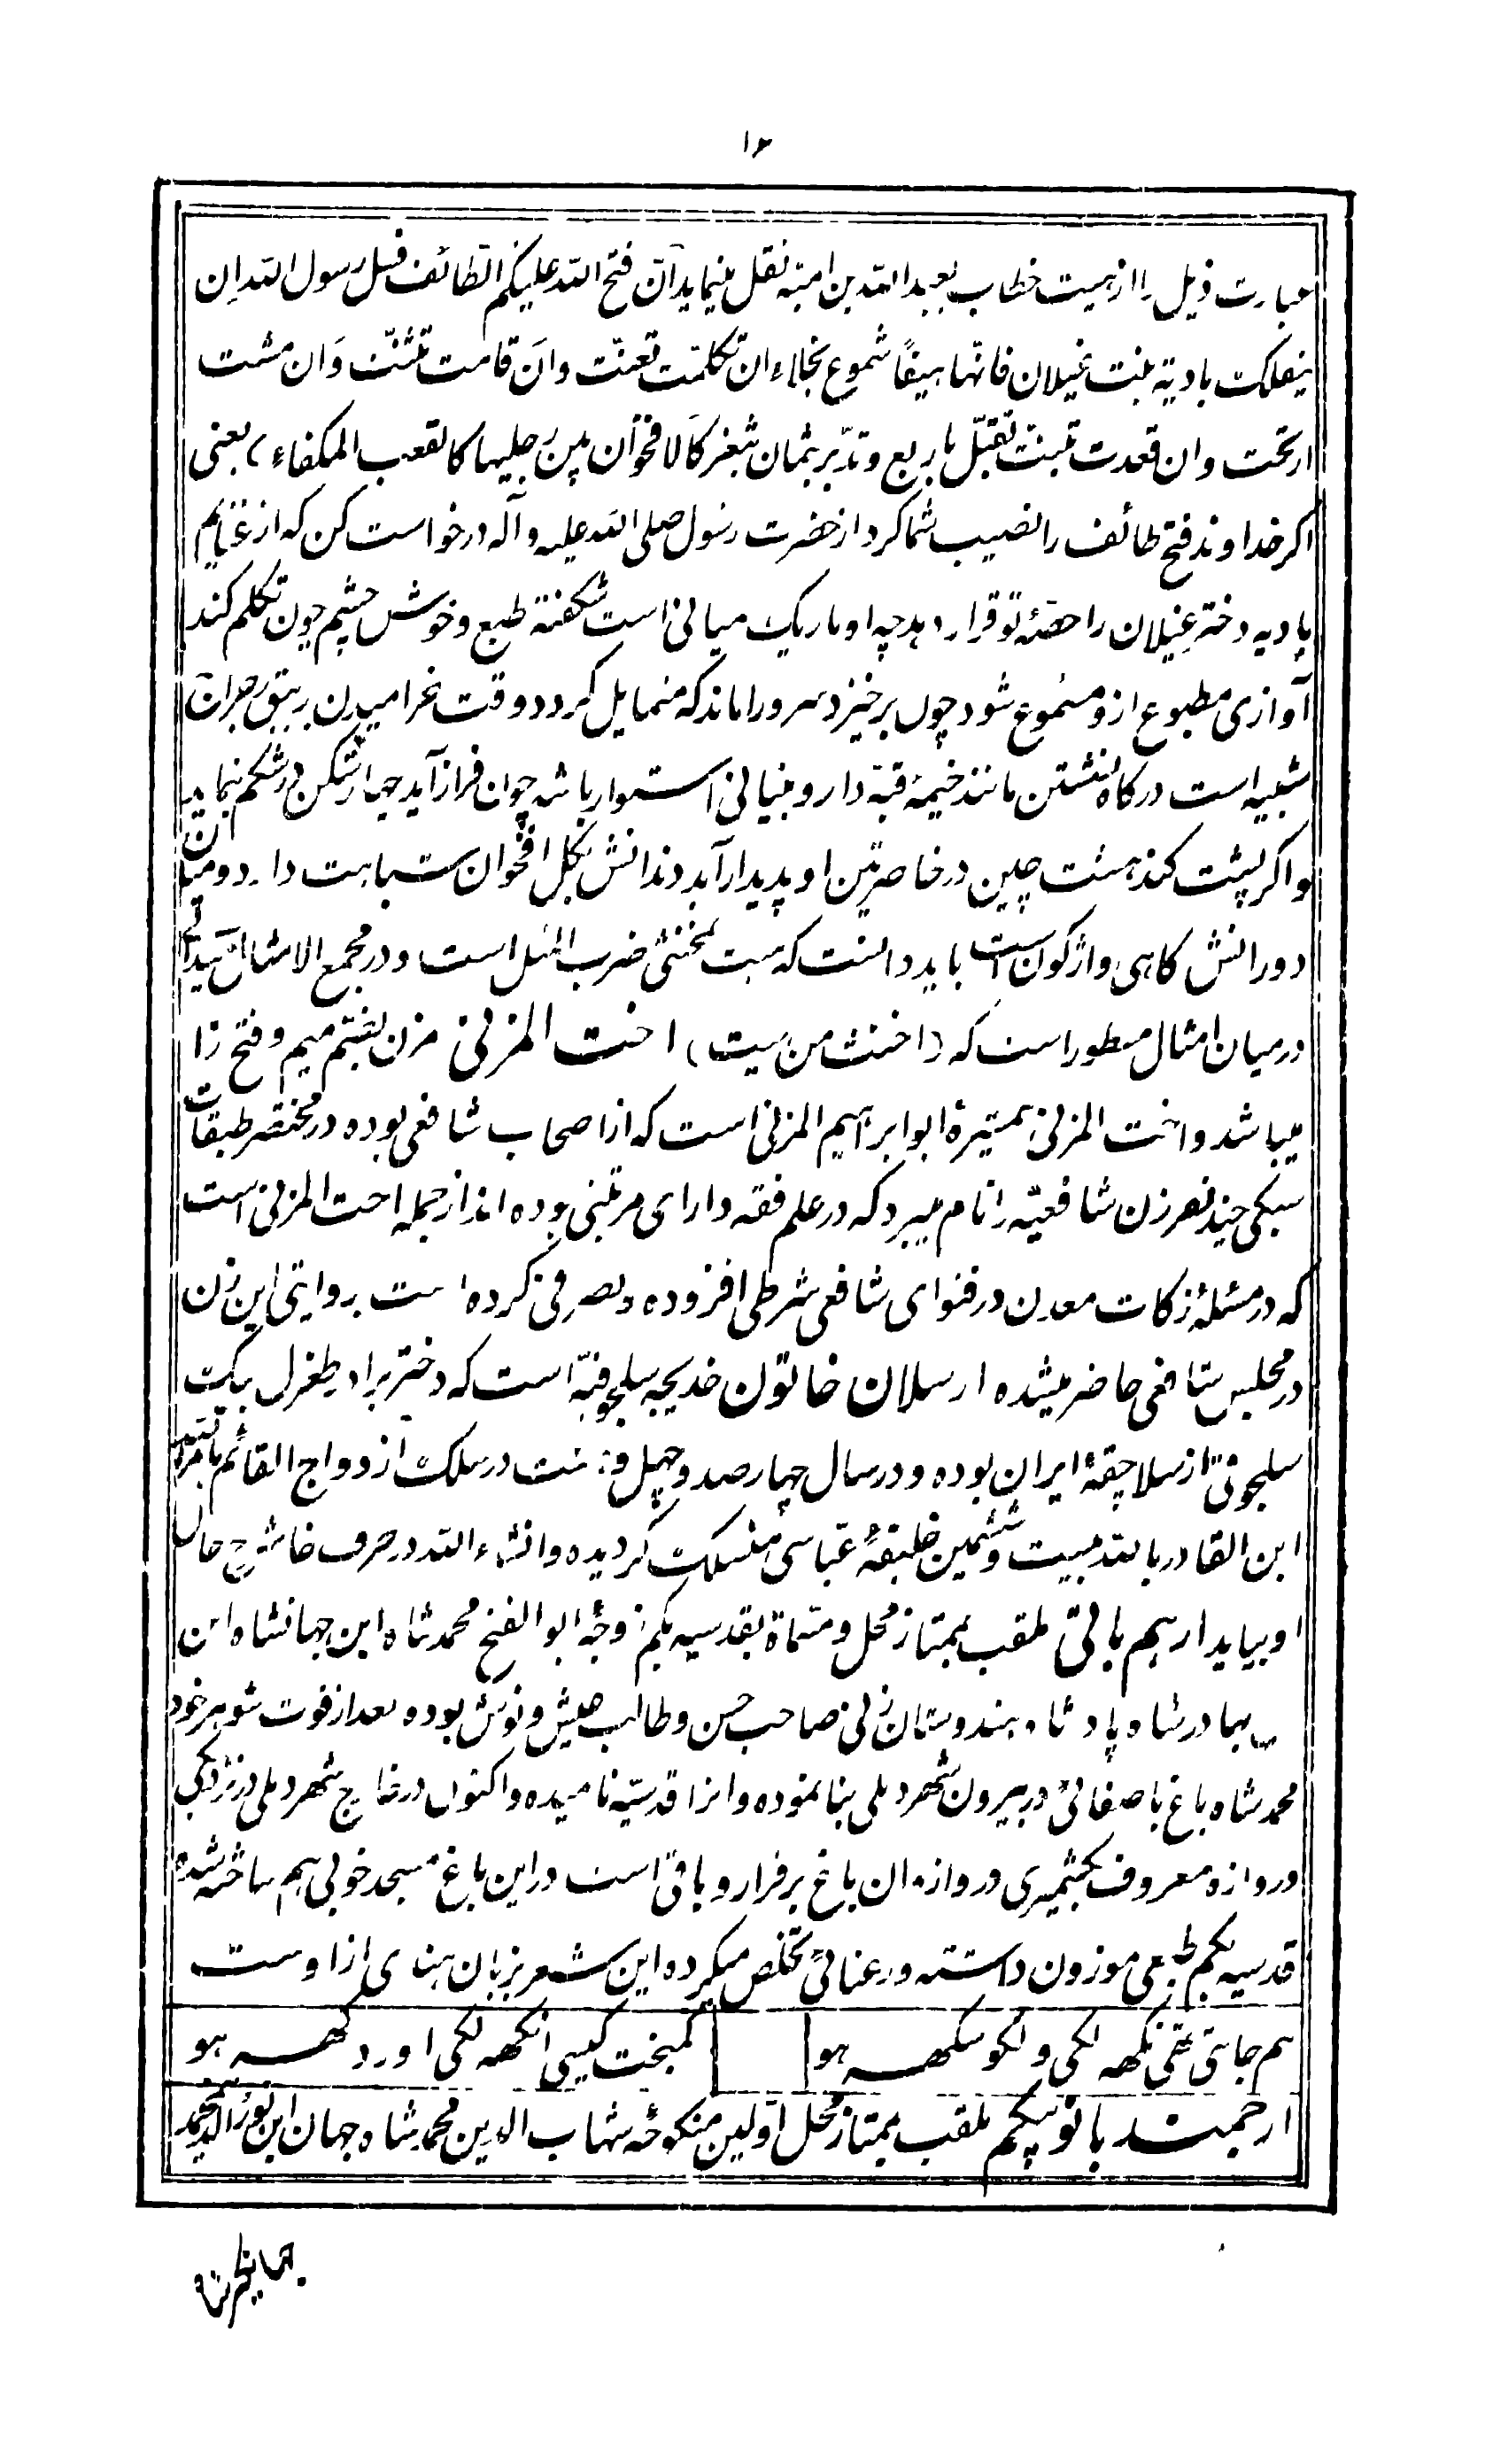 ۱۶
عبارت ذیل را از هیت خطاب بعبدالله بن امیّه نقل مینماید ان فتح الله علیکم الطّائف فسل رسول الله ان
ینفلک بادیة بنت غیلان فانّها هیفاً شموع نجلاء ان تکلّمت تغنّت وان قامت تثنّت وان مشت
ارتجّت وان قعدت تبنّت تقبّل باربع وتدّبر بثمان بثغر کالاقحوان بین رجلیها کالقعب المکفاء) یعنی
اکر خداوند فتح طائف را نصیب شما کرد از حضرت رسول صلی الله علیه وآله درخواست کن که از غنایم
بادیه دختر غیلان را حصّهٔ تو قرار دهد چه او باریک میانی است شکفته طبع و خوش چشم چون تکلم کند
آوازی مطبوع ازو مسموع شود چون برخیزد سرو را ماند که متمایل کردد و وقت خرامیدن
شبیه است در کاه نشستن مانند خیمهٔ قبّه دار و بنیانی استوار باشد چون فراز آید چهار شکن در شکم نماید
و اکر پشت کند هشت چین در خاصرتین او پدیدار آید دندانش بکل اقحوان شباهت دارد و میان
دو رانش کاهی واژکون است باید دانست که هیت مخنثی ضرب المثل است و در مجمع الامثال میدانی
در میان امثال مسطور است که (اخنث من هیت) اخت المزنی مزن بضّم میم و فتح زا
میباشد واخت المزنی همشیرهٔ ابو ابراهیم المزنی است که از اصحاب شافعی بوده در مختصر طبقات
سبکی چند نفر زن شافعیّه را نام میبرد که در علم فقه دارای مرتبتی بوده اند از جمله اخت المزنی است
که در مسئلهٔ زکات معدن در فتوای شافعی شرطی افزوده و تصرفی کرده است بروایتی این زن
در مجلس شافعی حاضر میشده ارسلان خاتون خدیجه سلجوقیّه است که دختر برادر طغرل بیک
سلجوقی از سلاجقهٔ ایران بوده و در سال چهار صد و چهل و هشت در سلک ازدواج القائم بامرالله
ابن القادر بالله بیست و ششمین خلیفهٔ عباسی منسلک کردیده وانشاء الله در حرف خا شرح حال
او بیاید ارهم بائی ملقب بممتاز محل و مسماة بقدسیه بکم زوجهٔ ابو الفتح محمد شاه ابن جهانشاه ابن
بهادر شاه پادشاه هندوستان زنی صاحب حسن و طالب عیش و نوش بوده بعد از فوت شوهر خود
محمد شاه باغ باصفائی در بیرون شهر دهلی بنا نموده و انرا قدسیّه نامیده واکنون در خارج شهر دهلی در نزدیکی
دروازه معروف بکشمیری دروازه ان باغ برقرار و باقی است در این باغ مسجد خوبی هم ساخته شده
قدسیه بکم طبعی موزون داشته و رعنائی تخلص میکرده این شعر بزبان هندی از اوست
هم جانتی تهی نکهه لکی دلکو سکهه هو کمبخت کیسی انکهه لکی اور دکهه هو
ارجمند بانو بیکم ملقب بممتاز محل اوّلین منکوحهٔ شهاب الدین محمد شاه جهان ابن نورالدین محمد
جهانکیر شاه